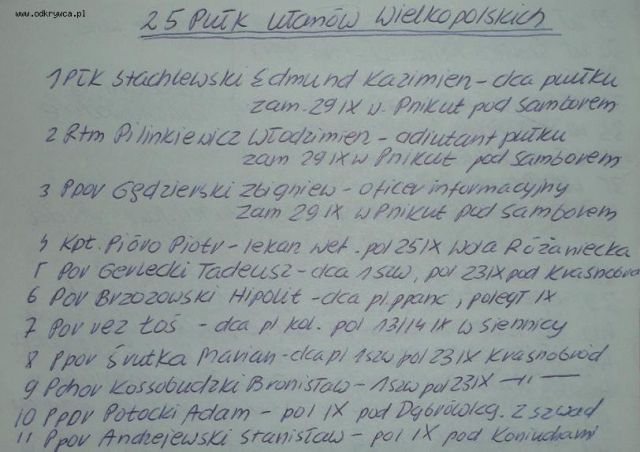 www.odkrywca.pl
25 Pułk ułanów Wielkopolskich
1 Płk Stachlewski Edmund Kazimierz - dca pułku
zam. 29 IX w. Pnikut pod Samborem
2 Rtm Pilinkiewicz Włodzimierz - adiutant pułku
zam 29 IX w Pnikut pod Samborem
3 Ppor Gędzierski Zbigniew - oficer informacyjny
zam 29 IX w Pnikut pod Samborem
4 Kpt. Pióro Piotr - lekarz wet. pol 25 IX Wola Różaniecka
5 Por Gerlecki Tadeusz - dca 1 szw, pol 23 IX pod Krasnobro
6 Por Brzozowski Hipolit - dca pl. ppanc, poległ IX
7 Por rez Łoś - dca pl kol. pol 13/14 IX w Siennicy
8 Ppor Śrutka Marian - dca pl 1 szw pol 23 IX Krasnobród
9 Pchor Kossobudzki Bronisław - 1 szw pol 23 IX -"-
10 Ppor Potocki Adam - pol IX pod Dąbrówką. 2 szwad
11 Ppor Andrzejewski Stanisław - pol IX pod Koniuchami